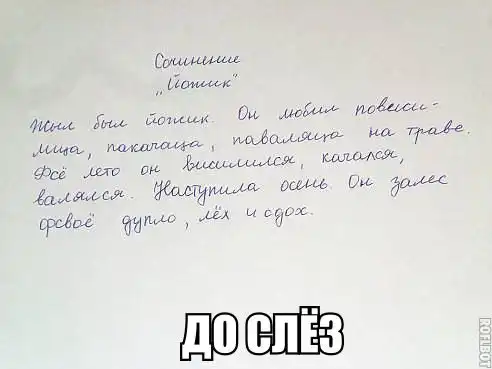 Сочинение
„Йожик"
Жыл был йожик. Он любил повеси-
лица, пакачаца, паваляца на траве.
Фсё лето он висилился, качался,
валялся. Наступила осень. Он залес
фсваё дупло, лёх и сдох.
ДО СЛЁЗ
ROFLBOT